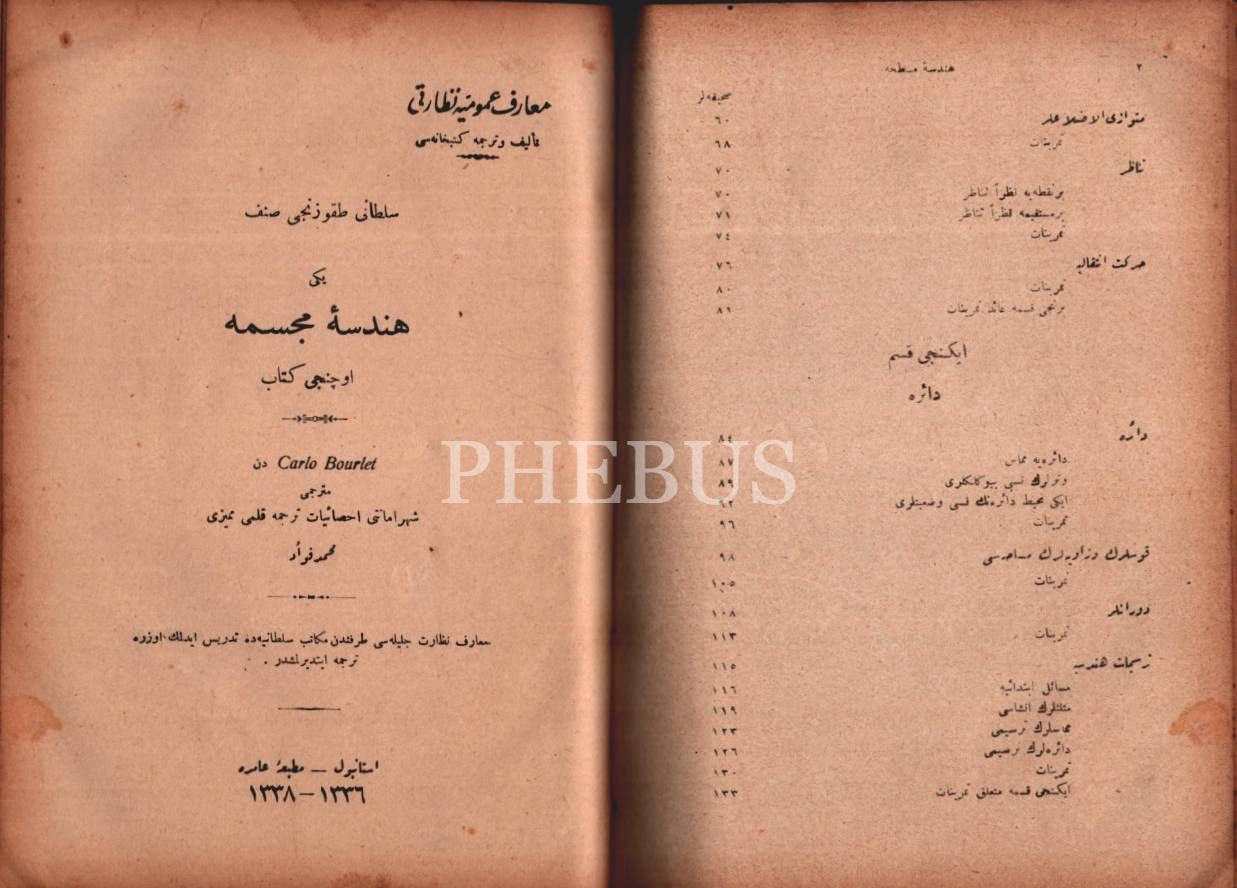 معارف عمومیه نظارتی
تألیف و ترجمه کتبخانه‌سی
سلطانی طقوزنجی صنف
یکی
هندسهٔ مجسمه
اوچنجی کتاب
Carlo Bourlet دن
مترجمی
شهر امانتی احصائیات ترجمه قلمی ممیزی
محمد فؤاد
معارف نظارت جلیله‌سی طرفندن مکاتب سلطانیه‌ده تدریس ایدلك اوزره
ترجمه ایتدیرلمشدر .
استانبول — مطبعهٔ عامره
١٣٣٦ – ١٣٣٨
٢ هندسهٔ مسطحه
صحیفه‌لر
متوازی الاضلاعلر ٦٠
تمرینات ٦٨
تناظر ٧٠
برنقطه‌یه نظراً تناظر ٧٠
برمستقیمه نظراً تناظر ٧١
تمرینات ٧٤
حرکت انتقالیه ٧٦
تمرینات ٨٠
برنجی قسمه عائد تمرینات ٨١
ایکنجی قسم
دائره
دائره ٨٤
دائره‌یه مماس ٨٧
وترلرك نسبی بیوكلكلری ٨٩
ایکی محیط دائره‌نك نسبی وضعیتلری ٩٢
تمرینات ٩٦
قوسلرك و زاویه‌لرك مساحه‌سی ٩٨
تمرینات ١٠٥
دورانلر ١٠٨
تمرینات ١١٣
ترسیمات هندسیه ١١٥
مسائل ابتدائیه ١١٦
مثلثلرك انشاسی ١١٩
مماسلرك ترسیمی ١٢٣
دائره‌لرك ترسیمی ١٢٦
تمرینات ١٣٠
ایکنجی قسمه متعلق تمرینات ١٣٣
PHEBUS